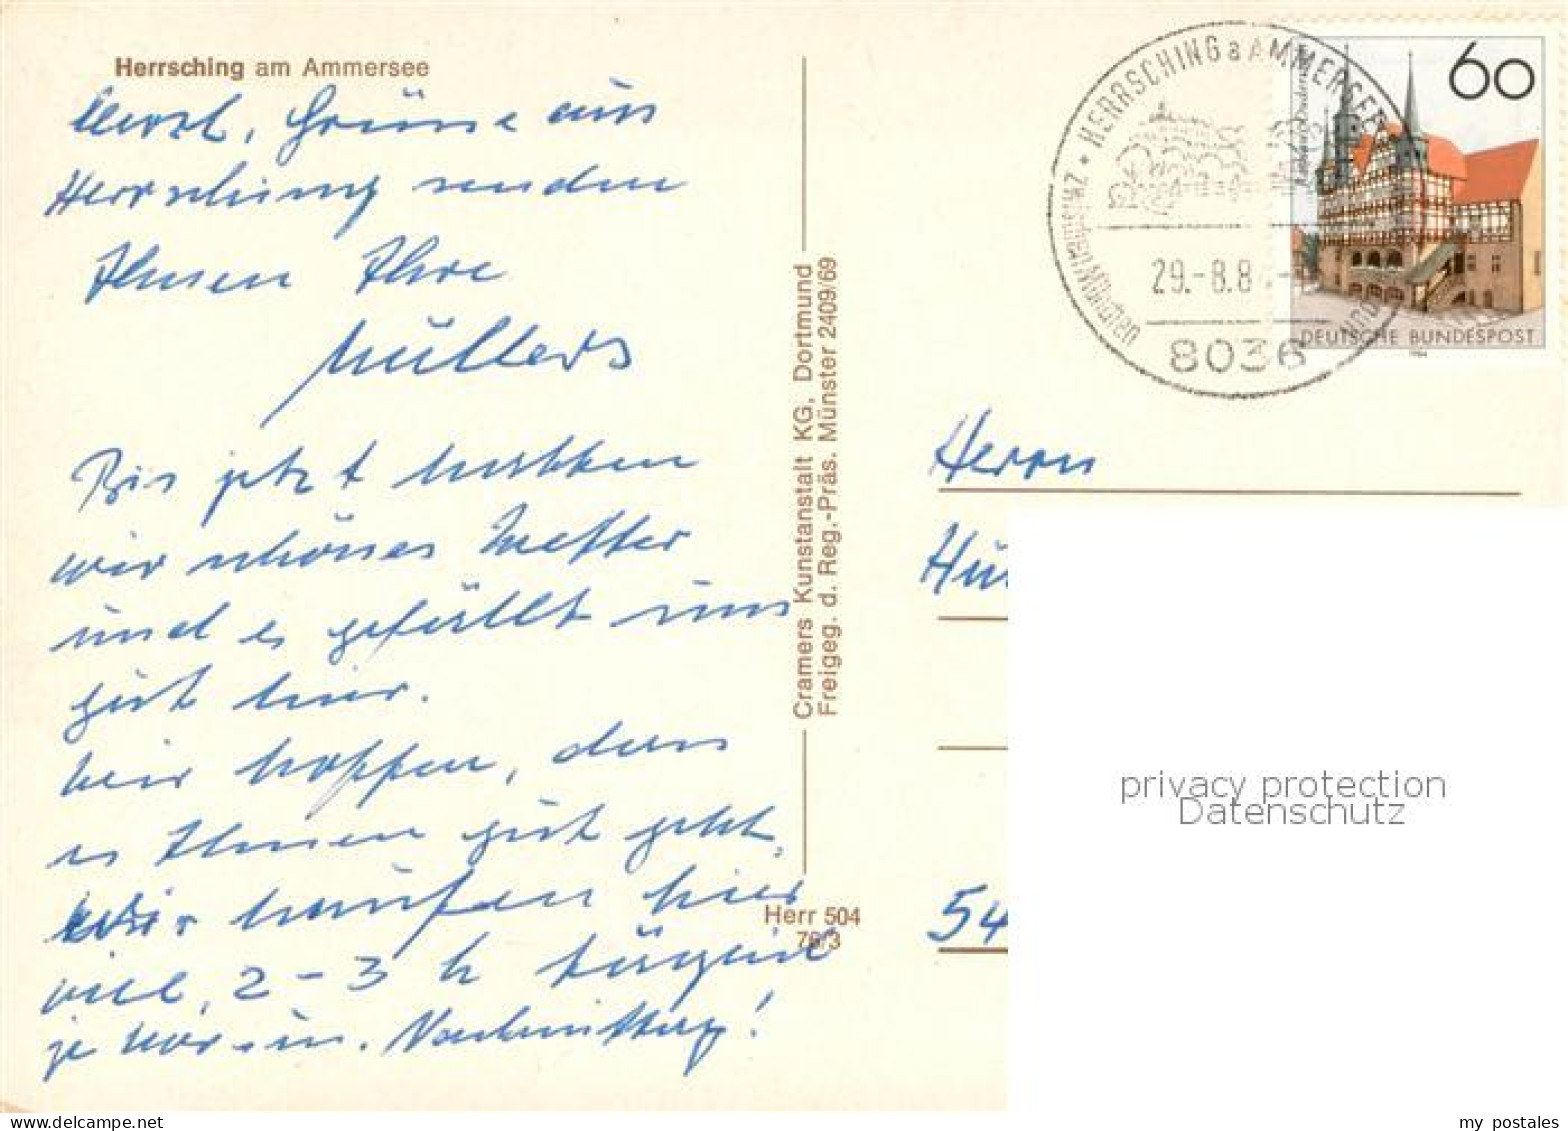 Herrsching am Ammersee
Herzl. Grüsse aus
Herrsching senden
Ihnen Ihre
Müllers
Bis jetzt hatten
wir schönes Wetter
und es gefällt uns
gut hier.
Wir hoffen, dass
es Ihnen gut geht.
Wir laufen hier
viel, 2-3 h
je Vor- u. Nachmittag!
Cramers Kunstanstalt KG, Dortmund
Freigeg. d. Reg.-Präs. Münster 2409/69
Herr 504
76/3
HERRSCHING a AMMERSEE
29.-8.8
8036
60
DEUTSCHE BUNDESPOST
1984
Herrn
54
privacy protection
Datenschutz
my postales